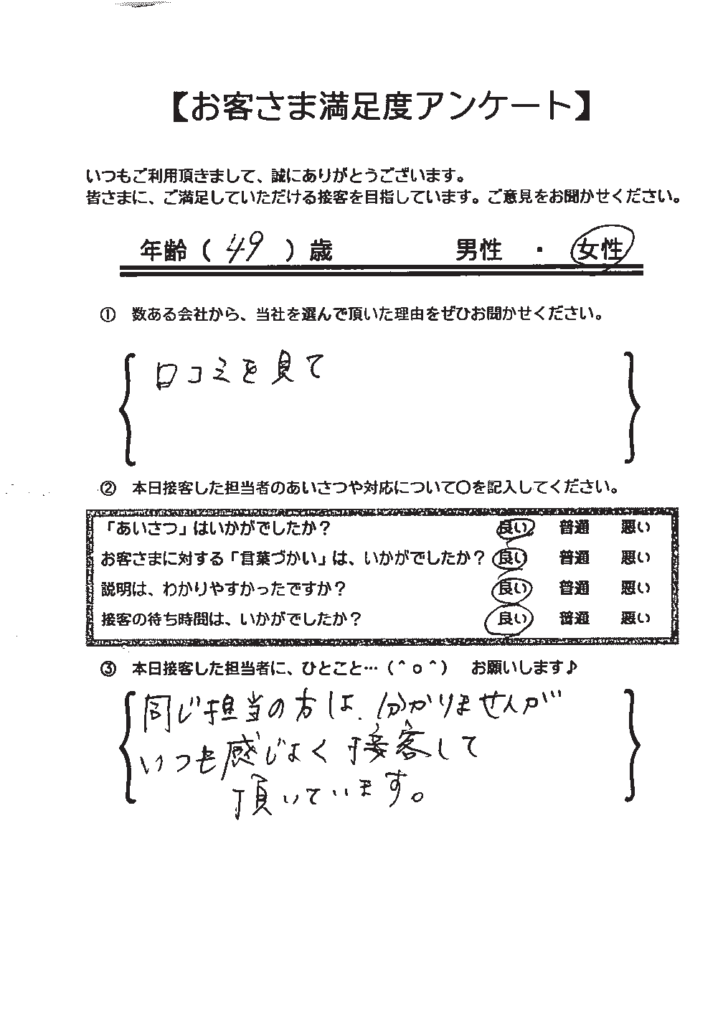 【お客さま満足度アンケート】
いつもご利用頂きまして、誠にありがとうございます。
皆さまに、ご満足していただける接客を目指しています。ご意見をお聞かせください。
年齢（ 49 ）歳 男性 ・ 女性
① 数ある会社から、当社を選んで頂いた理由をぜひお聞かせください。
口コミを見て
② 本日接客した担当者のあいさつや対応について〇を記入してください。
「あいさつ」はいかがでしたか？ 良い 普通 悪い
お客さまに対する「言葉づかい」は、いかがでしたか？ 良い 普通 悪い
説明は、わかりやすかったですか？ 良い 普通 悪い
接客の待ち時間は、いかがでしたか？ 良い 普通 悪い
③ 本日接客した担当者に、ひとこと…（＾o＾） お願いします♪
同じ担当の方は、分かりませんが
いつも感じよく接客して
頂いています。